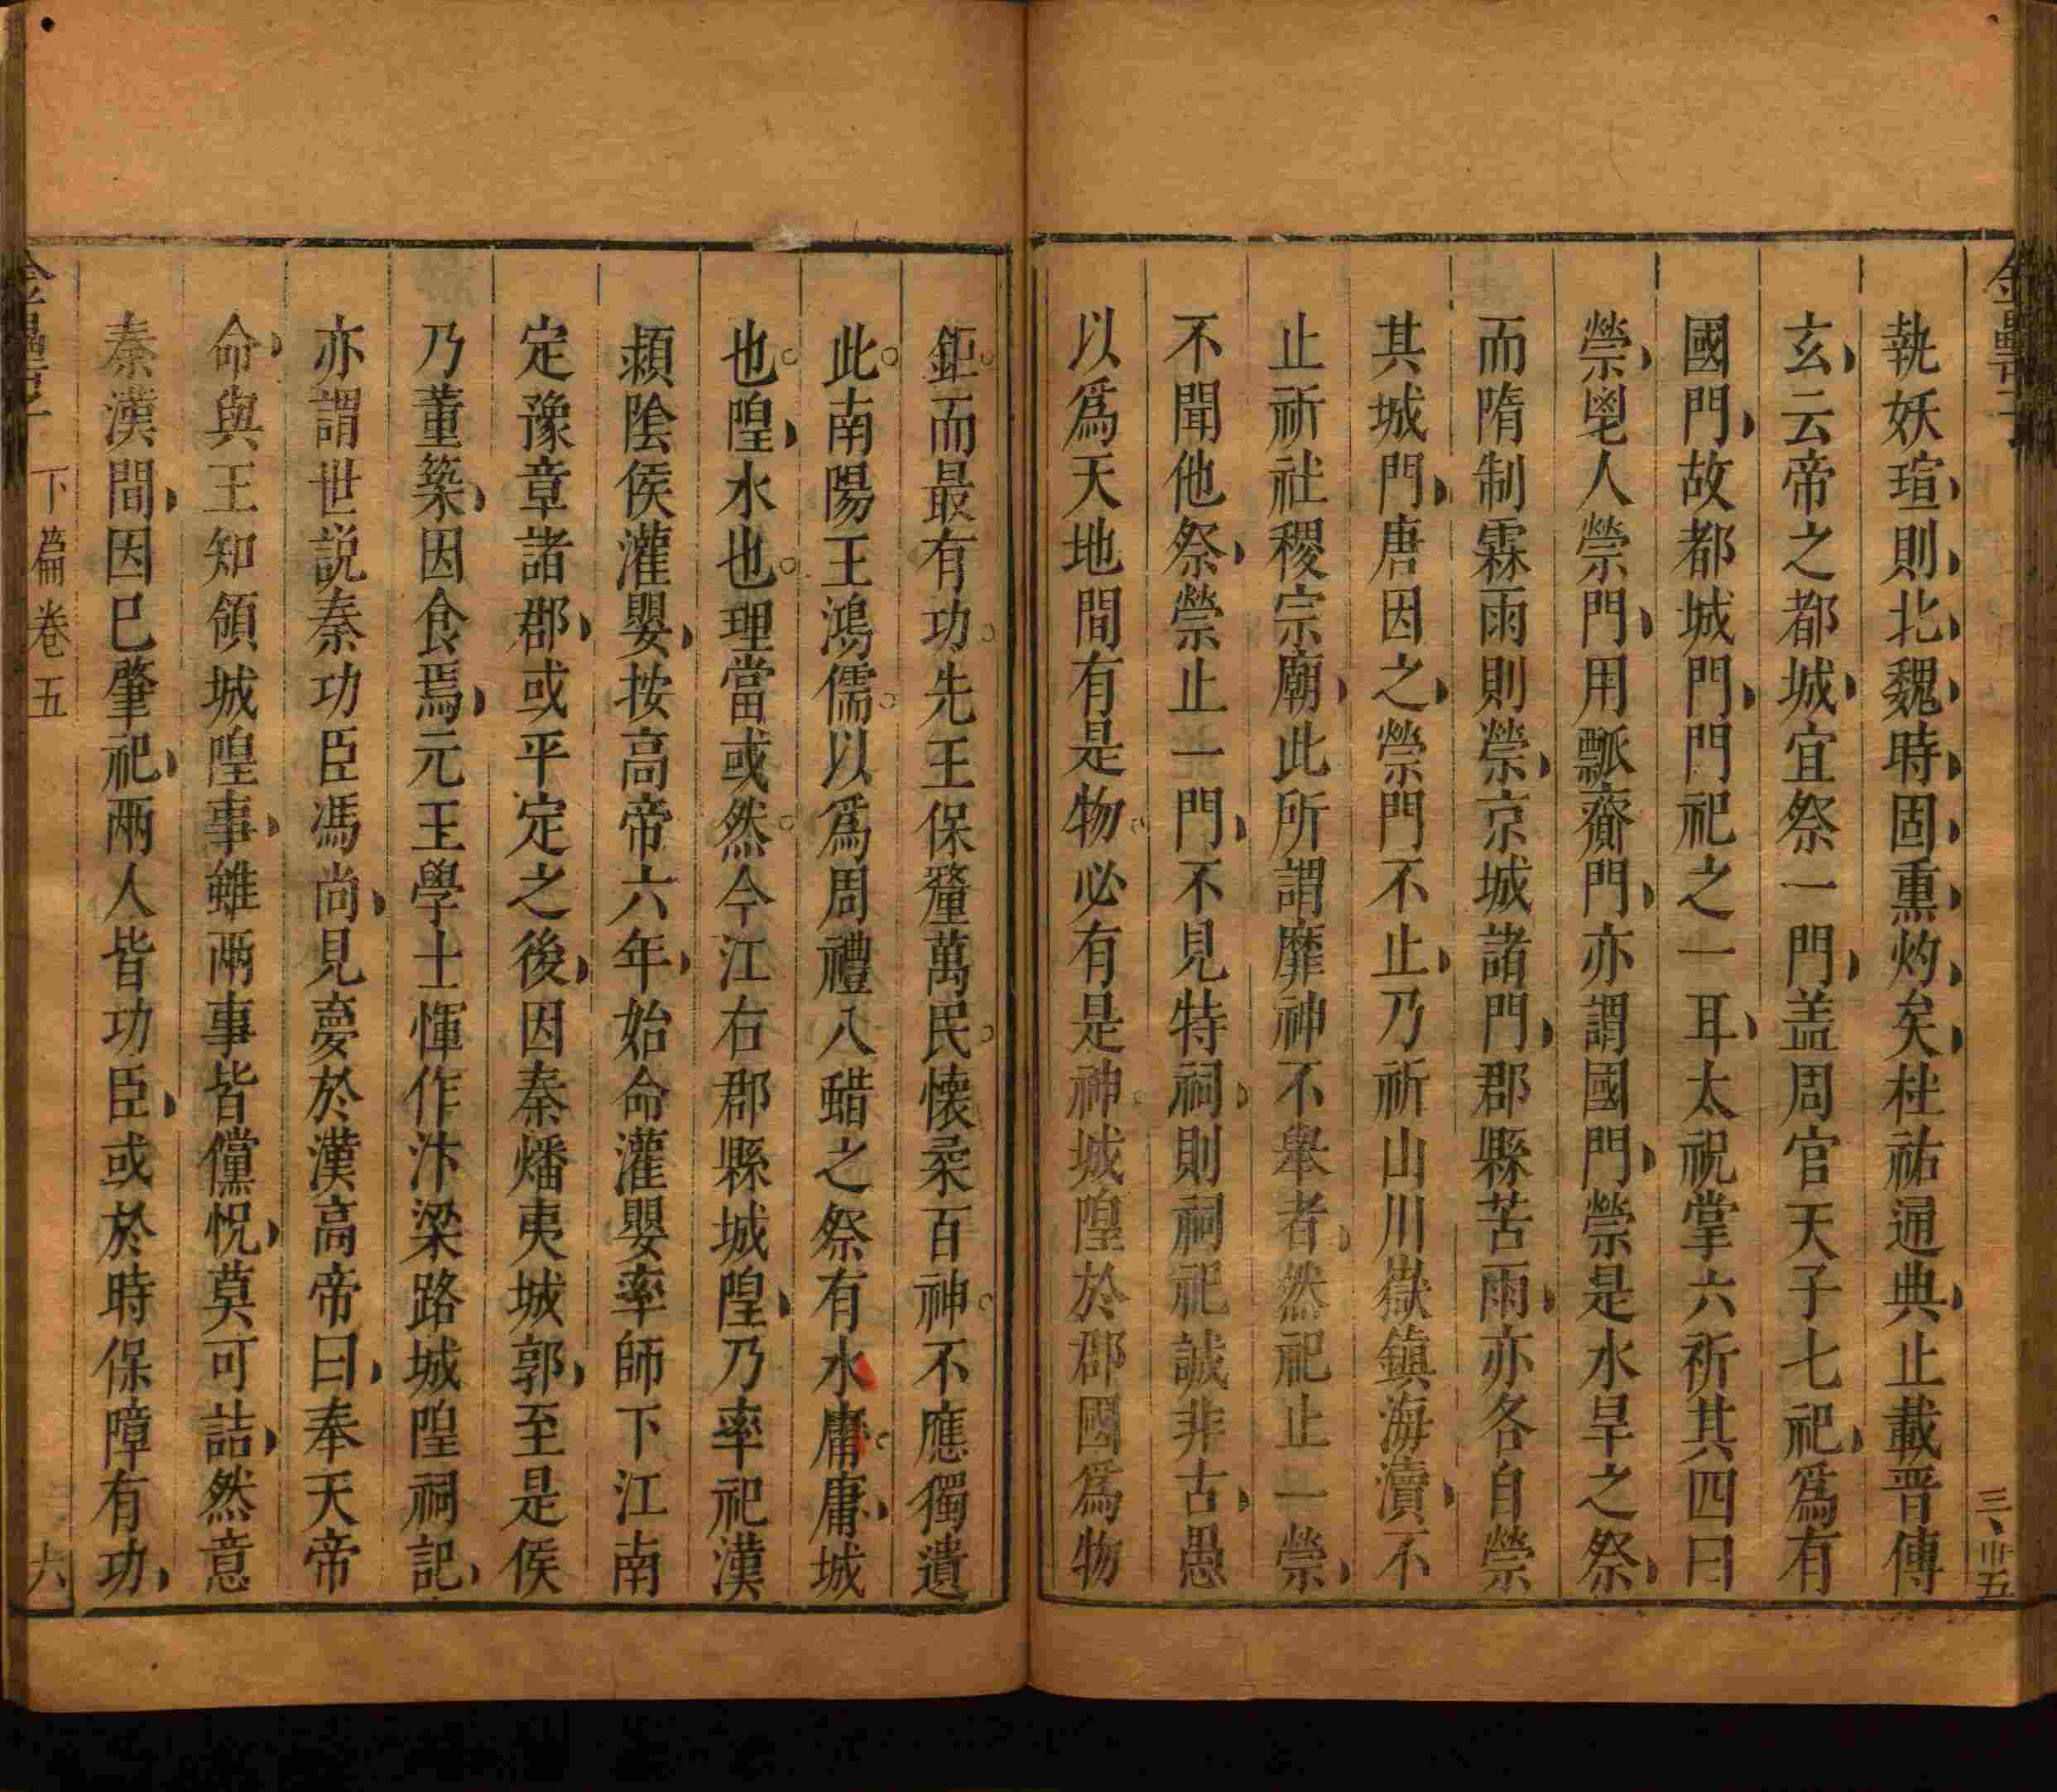 金罍子
三、卅五
執妖瑄則北魏時固熏灼矣杜祐通典止載晋傅
玄云帝之都城宜祭一門盖周官天子七祀爲有
國門故都城門門祀之一耳太祝掌六祈其四曰
禜鬯人禜門用瓢齎門亦謂國門禜是水旱之祭
而隋制霖雨則禜京城諸門郡縣苦雨亦各自禜
其城門唐因之禜門不止乃祈山川嶽鎮海瀆不
止祈社稷宗廟此所謂靡神不舉者然祀止一禜
不聞他祭禜止一門不見特祠則祠祀誠非古愚
以爲天地間有是物必有是神城隍於郡國爲物
鉅而最有功先王保釐萬民懷柔百神不應獨遺
此南陽王鴻儒以爲周禮八蜡之祭有水庸庸城
也隍水也理當或然今江右郡縣城隍乃率祀漢
潁陰侯灌嬰按高帝六年始命灌嬰率師下江南
定豫章諸郡或平定之後因秦燔夷城郭至是侯
乃董築因食焉元王學士惲作汴梁路城隍祠記
亦謂世說秦功臣馮尚見夣於漢高帝曰奉天帝
命與王知領城隍事雖兩事皆儻怳莫可詰然意
秦漢間因巳肇祀兩人皆功臣或於時保障有功
金罍子
下篇卷五
六